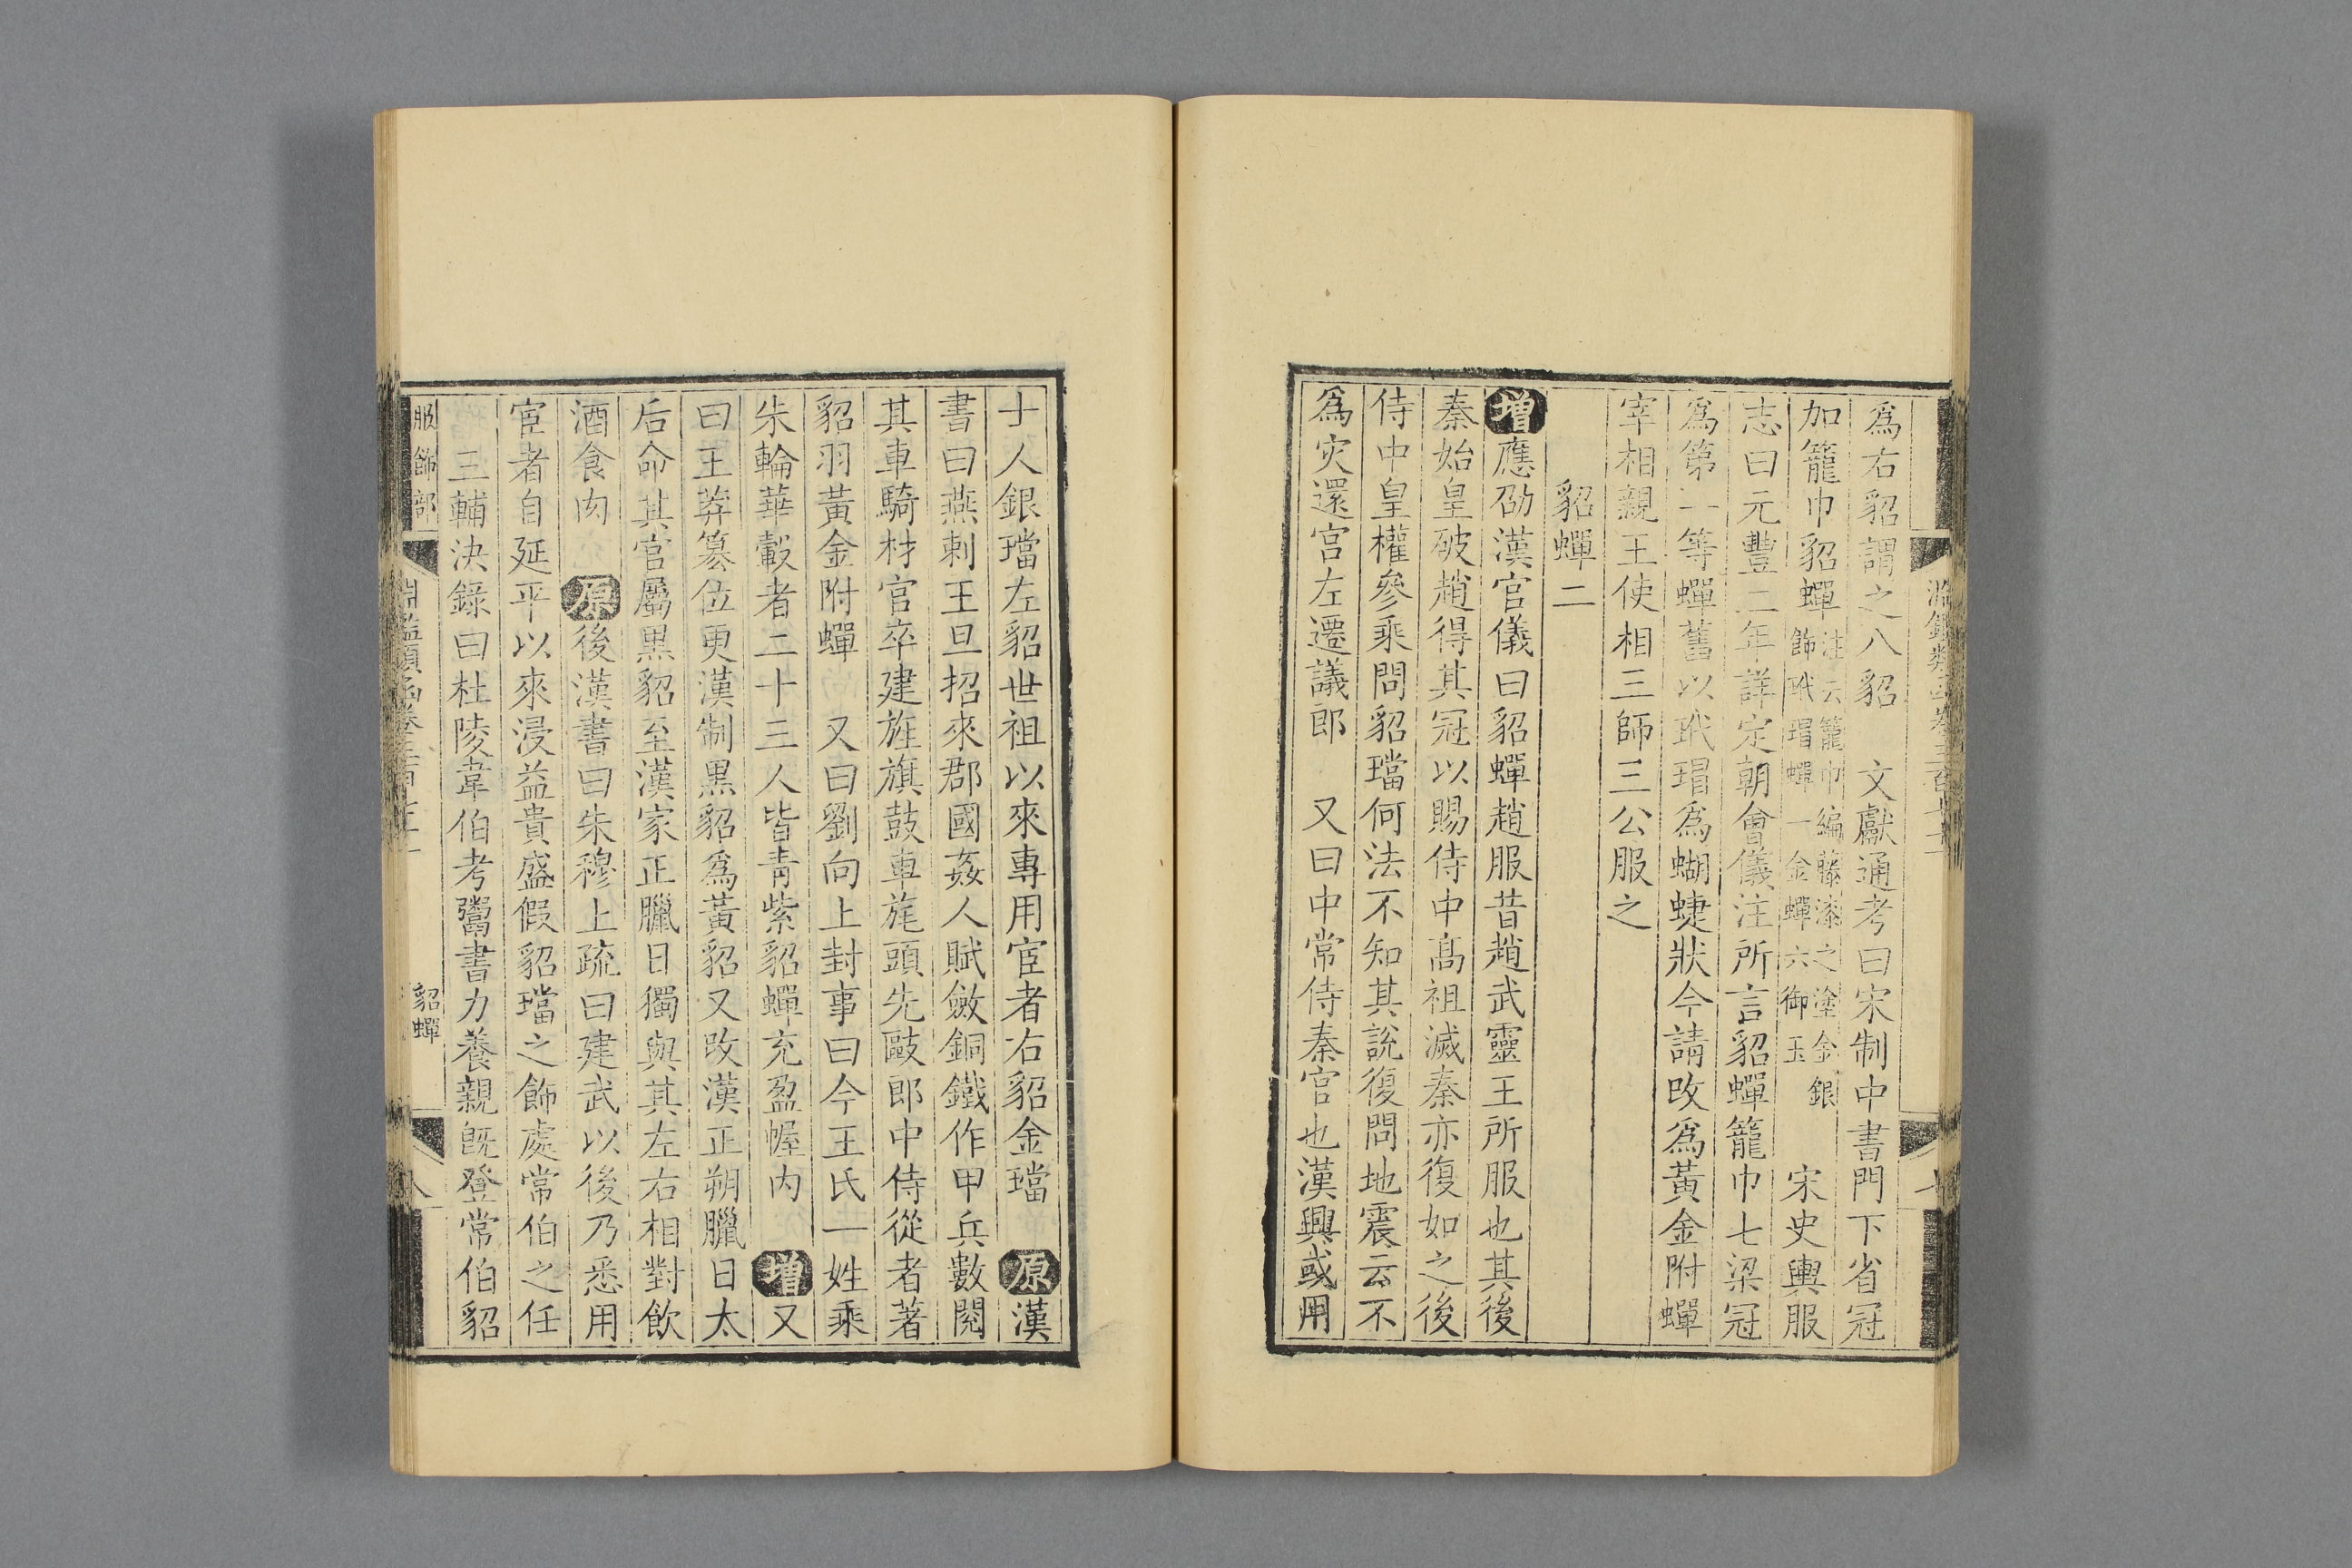 爲右貂謂之八貂　文獻通考曰宋制中書門下省冠
加籠巾貂蟬注云籠巾編藤漆之塗金銀飾玳瑁蟬一金蟬六御玉　宋史輿服
志曰元豐二年詳定朝會儀注所言貂蟬籠巾七梁冠
爲第一等蟬舊以玳瑁爲蝴蜨狀今請改爲黃金附蟬
宰相親王使相三師三公服之
貂蟬二
增應劭漢官儀曰貂蟬趙服昔趙武靈王所服也其後
秦始皇破趙得其冠以賜侍中高祖滅秦亦復如之後
侍中皇權參乘問貂璫何法不知其說復問地震云不
爲灾還宮左遷議郎　又曰中常侍秦官也漢興或用
十人銀璫左貂世祖以來專用宦者右貂金璫　原漢
書曰燕剌王旦招來郡國姦人賦斂銅鐵作甲兵數閱
其車騎材官卒建旌旗鼓車旄頭先敺郎中侍從者著
貂羽黃金附蟬　又曰劉向上封事曰今王氏一姓乘
朱輪華轂者二十三人皆青紫貂蟬充盈幄内　增又
曰王莽篡位更漢制黑貂爲黃貂又改漢正朔臘日太
后命其官屬黑貂至漢家正臘日獨與其左右相對飲
酒食肉　原後漢書曰朱穆上疏曰建武以後乃悉用
宦者自延平以來浸益貴盛假貂璫之飾處常伯之任
三輔決錄曰杜陵韋伯考鬻書力養親旣登常伯貂
服飾部
淵鑑類函卷三百七十一
貂蟬
八